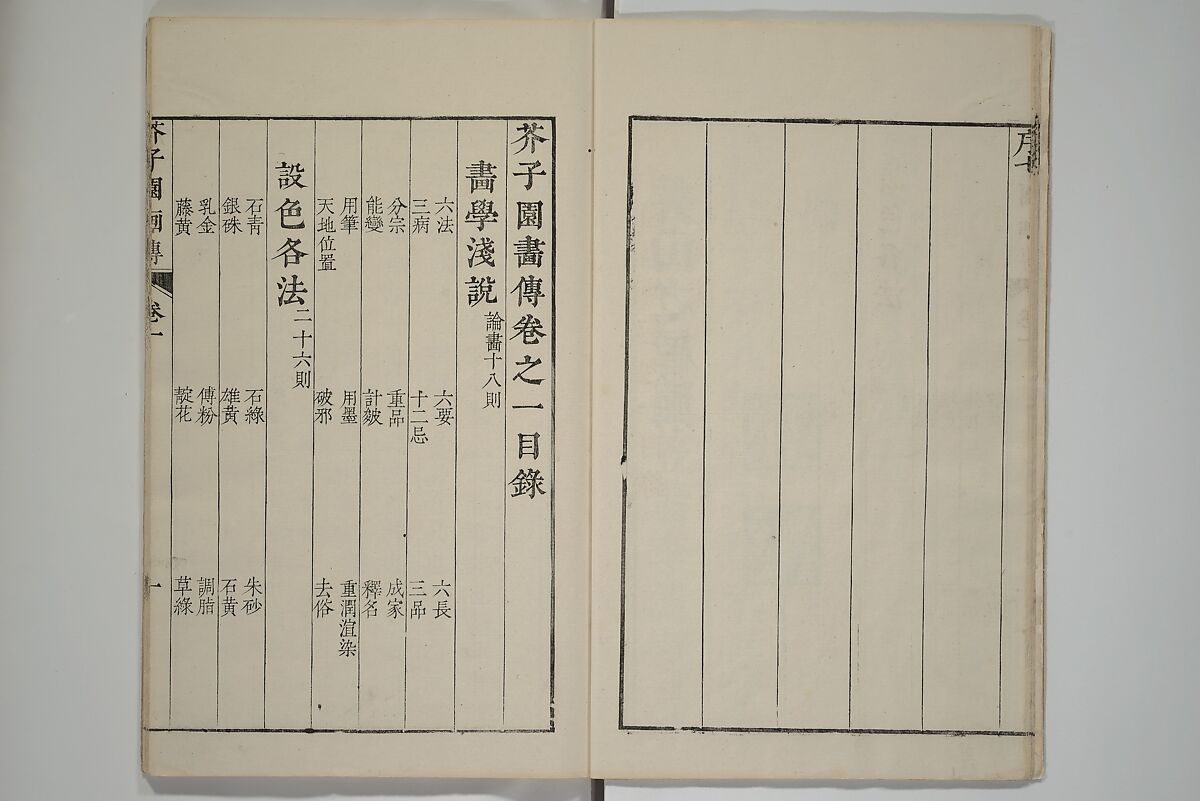 序七
芥子園畫傳卷之一目錄
畫學淺說 論畫十八則
六法 六要 六長
三病 十二忌 三品
分宗 重品 成家
能變 計皴 釋名
用筆 用墨 重潤渲染
天地位置 破邪 去俗
設色各法 二十六則
石青 石綠 朱砂
銀硃 雄黄 石黄
乳金 傅粉 調脂
藤黄 靛花 草綠
芥子園画傳 卷一 一